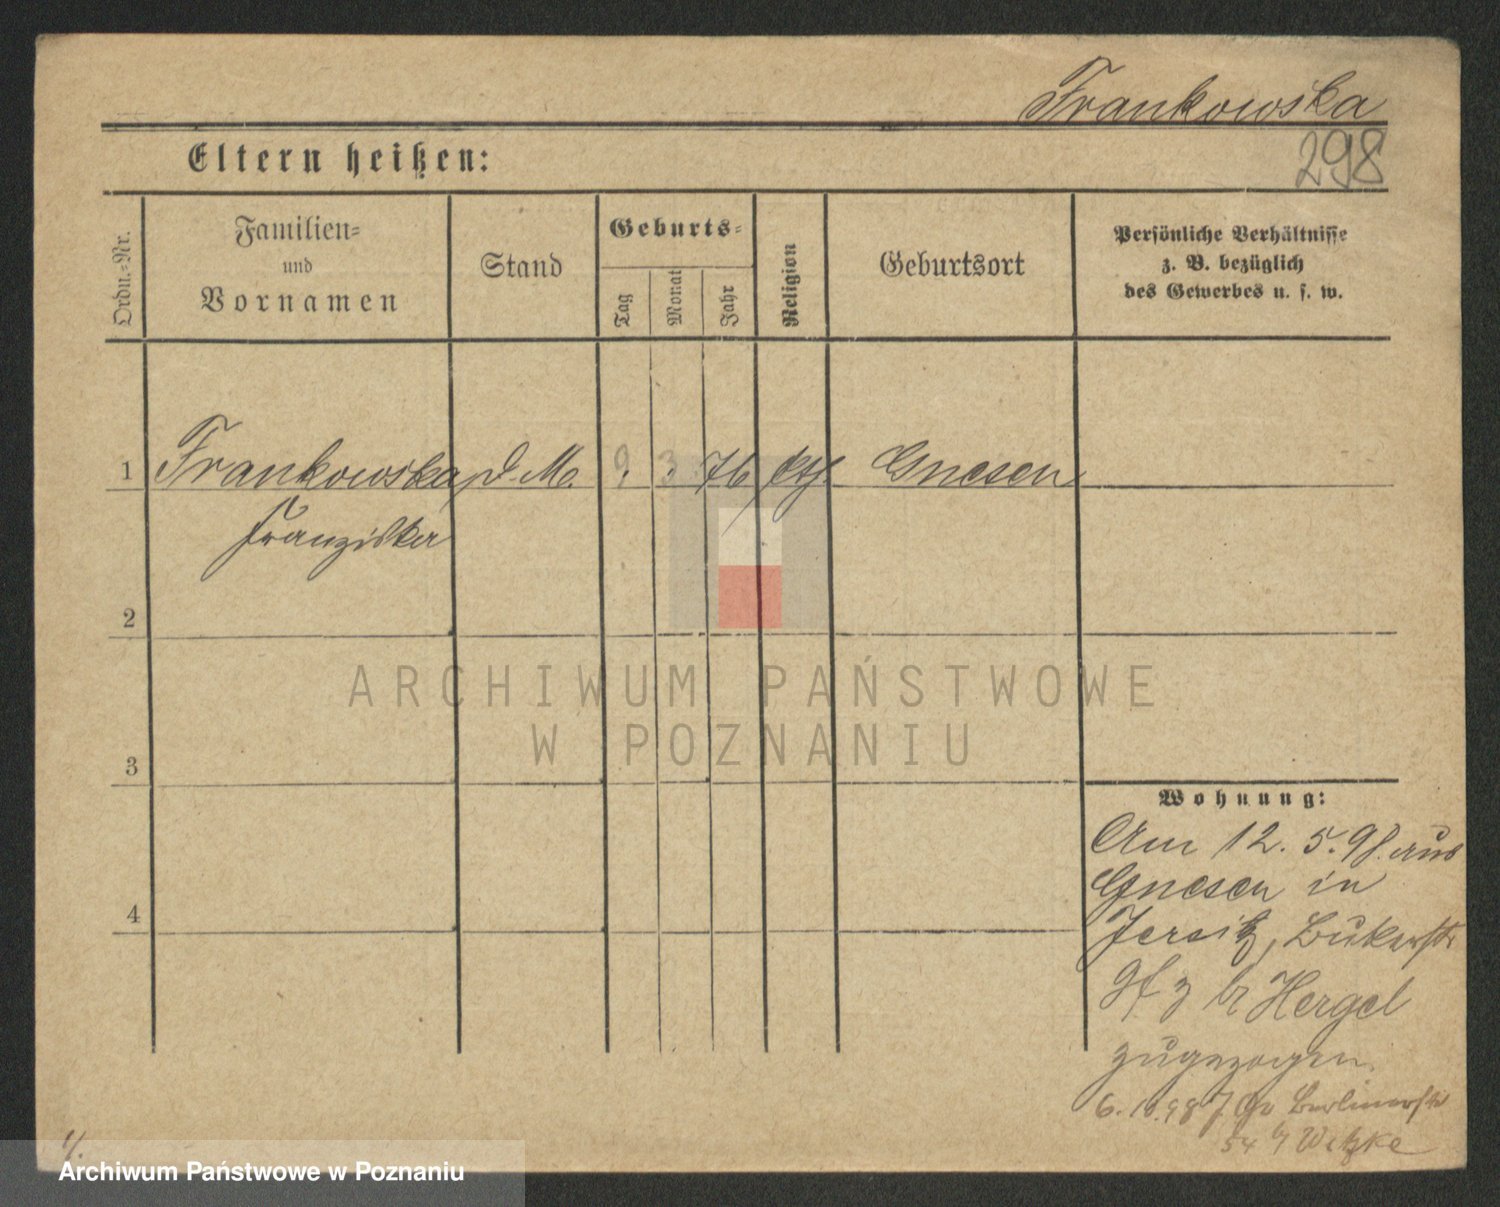 Frankowska
298
Eltern heißen:
Ordn.-Nr.
Familien-
und
Vornamen
Stand
Geburts-
Tag
Monat
Jahr
Religion
Geburtsort
Persönliche Verhältnisse
z. B. bezüglich
des Gewerbes u. s. w.
1 Frankowska, d. M. 9. 3. 76 kth. Gnesen
Franziska
2
3
4
ARCHIWUM PAŃSTWOWE
W POZNANIU
Wohnung:
Am 12. 5. 98. aus
Gnesen in
Jersitz, Bukerstr
b/ Hergel
zugezogen.
6. 10. 98 Berlinerstr
54 b/ Witzke
Archiwum Państwowe w Poznaniu